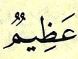 عَظِيمٌ